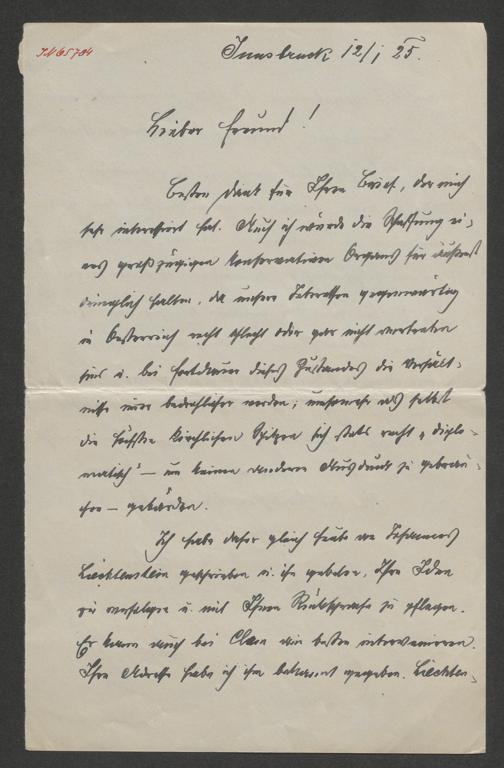 IN 65704
Innsbruck 12/1 25.
Lieber Freund!
Besten Dank für Ihren Brief, der mich
sehr interessiert hat. Auch ich würde die Schaffung ei-
nes großzügigen konservativen Organs für äußerst
dringlich halten, da unsere Interessen gegenwärtig
in Oesterreich recht schlecht oder gar nicht vertreten
sind u. bei Fortdauer dieses Zustandes die Verhält-
nisse immer bedenklicher werden; umsomehr als selbst
die höchsten kirchlichen Spitzen sich stets recht "diplo-
matisch" – um keinen anderen Ausdruck zu gebrau-
chen – gebärden.
Ich habe daher gleich heute an Johannes
Liechtenstein geschrieben u. ihn gebeten, Ihre Idee
zu verfolgen u. mit Ihnen Rücksprache zu pflegen.
Er kann auch bei Clan am besten intervenieren.
Ihre Adresse habe ich ihm bekannt gegeben. Liechten-